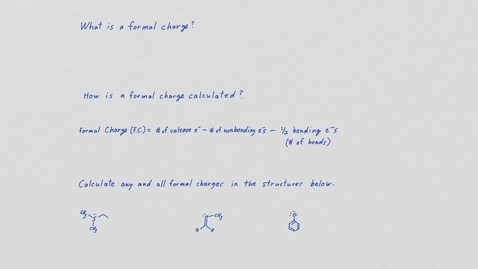 What is a formal charge?
How is a formal charge calculated?
Formal Charge (F.C.) = # of valence e⁻ - # of nonbonding e⁻s - 1/2 bonding e⁻s
(# of bonds)
Calculate any and all formal charges in the structures below.
CH₃ CH₃
CH₃ H